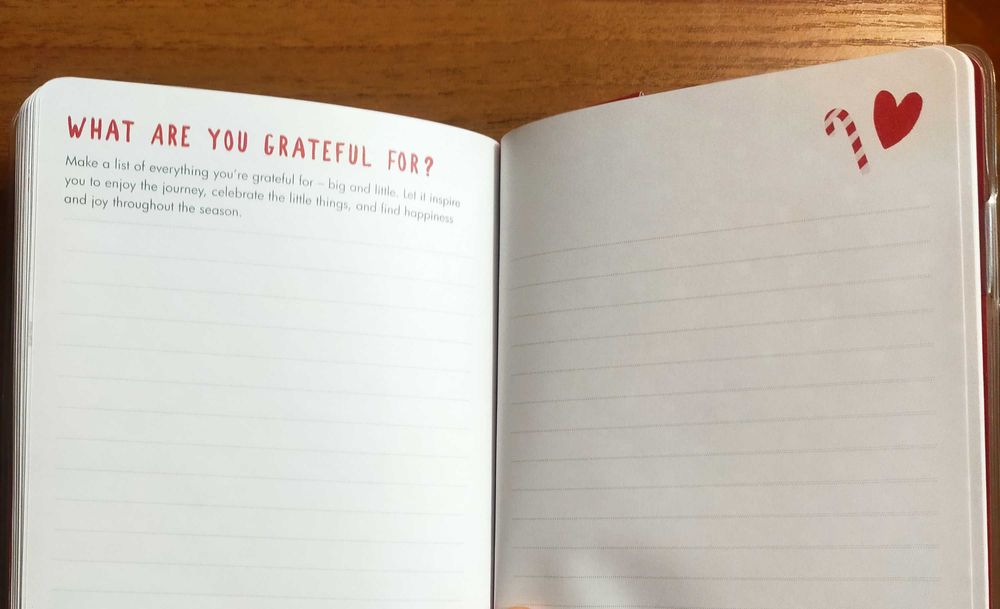 WHAT ARE YOU GRATEFUL FOR?
Make a list of everything you're grateful for – big and little. Let it inspire
you to enjoy the journey, celebrate the little things, and find happiness
and joy throughout the season.